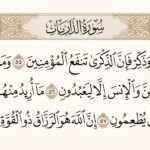 سُورَةُ الذَّارِيَاتِ
وَذَكِّرْ فَإِنَّ الذِّكْرَىٰ تَنفَعُ الْمُؤْمِنِينَ ٥٥ وَمَا
نَّ وَالْإِنسَ إِلَّا لِيَعْبُدُونِ ٥٦ مَا أُرِيدُ مِنْهُم
ن يُطْعِمُونِ ٥٧ إِنَّ اللَّهَ هُوَ الرَّزَّاقُ ذُو الْقُوَّةِ